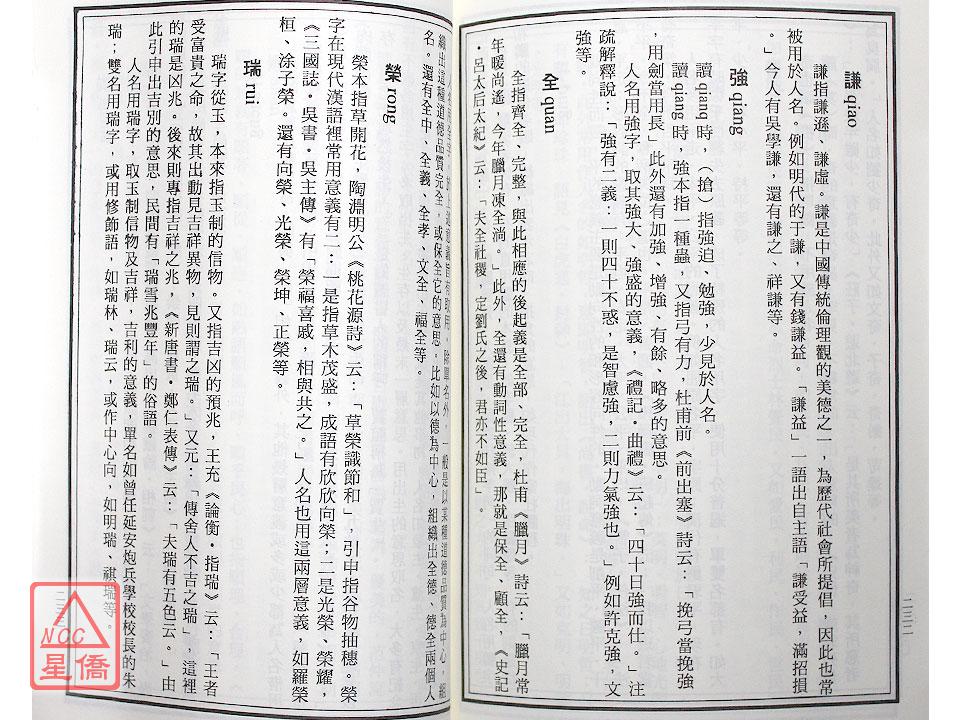 謙 qiao
謙指謙遜、謙虛。謙是中國傳統倫理觀的美德之一，為歷代社會所提倡，因此也常
被用於人名。例如明代的于謙，又有錢謙益。「謙益」一語出自主語「謙受益，滿招損
。」今人有吳學謙，還有謙之、祥謙等。
強 qiang
讀 qianq 時，（搶）指強迫、勉強，少見於人名。
讀 qiang 時，強本指一種蟲，又指弓有力，杜甫前《前出塞》詩云：「挽弓當挽強
，用劍當用長」此外還有加強、增強、有餘、略多的意思。
人名用強字，取其強大、強盛的意義，《禮記·曲禮》云：「四十日強而仕。」注
疏解釋說：「強有二義：一則四十不惑，是智慮強，二則力氣強也。」例如許克強，文
強等。
全 quan
全指齊全、完整，與此相應的後起義是全部、完全，杜甫《臘月》詩云：「臘月常
年暖尚遙，今年臘月凍全淌。」此外，全還有動詞性意義，那就是保全、顧全，《史記
·呂太后太紀》云：「夫全社稷，定劉氏之後，君亦不如臣」。
二三二
，除單名外，一般是以某種道德品質為中心，組
織出這種道德品質完全，或保全它的意思。比如以德為中心，組織出全德、德全兩個人
名。還有全中、全義、全孝、文全、福全等。
榮 rong
榮本指草開花，陶淵明公《桃花源詩》云：「草榮識節和」，引申指谷物抽穗。榮
字在現代漢語裡常用意義有二：一是指草木茂盛，成語有欣欣向榮；二是光榮、榮耀，
《三國誌·吳書·吳主傳》有「榮福喜戚，相與共之。」人名也用這兩層意義，如羅榮
桓、涂子榮。還有向榮、光榮、榮坤、正榮等。
瑞 rui
瑞字從玉，本來指玉制的信物。又指吉凶的預兆，王充《論衡·指瑞》云：「王者
受富貴之命，故其出動見吉祥異物，見則謂之瑞。」又元：「傳舍人不吉之瑞」，這裡
的瑞是凶兆。後來則專指吉祥之兆，《新唐書·鄭仁表傳》云：「夫瑞有五色云。」由
此引申出吉別的意思，民間有「瑞雪兆豐年」的俗語。
人名用瑞字，取玉制信物及吉祥，吉利的意義，單名如曾任延安炮兵學校校長的朱
瑞；雙名用瑞字，或用修飾語，如瑞林、瑞云，或作中心向，如明瑞、祺瑞等。
二三三
NCC
星僑